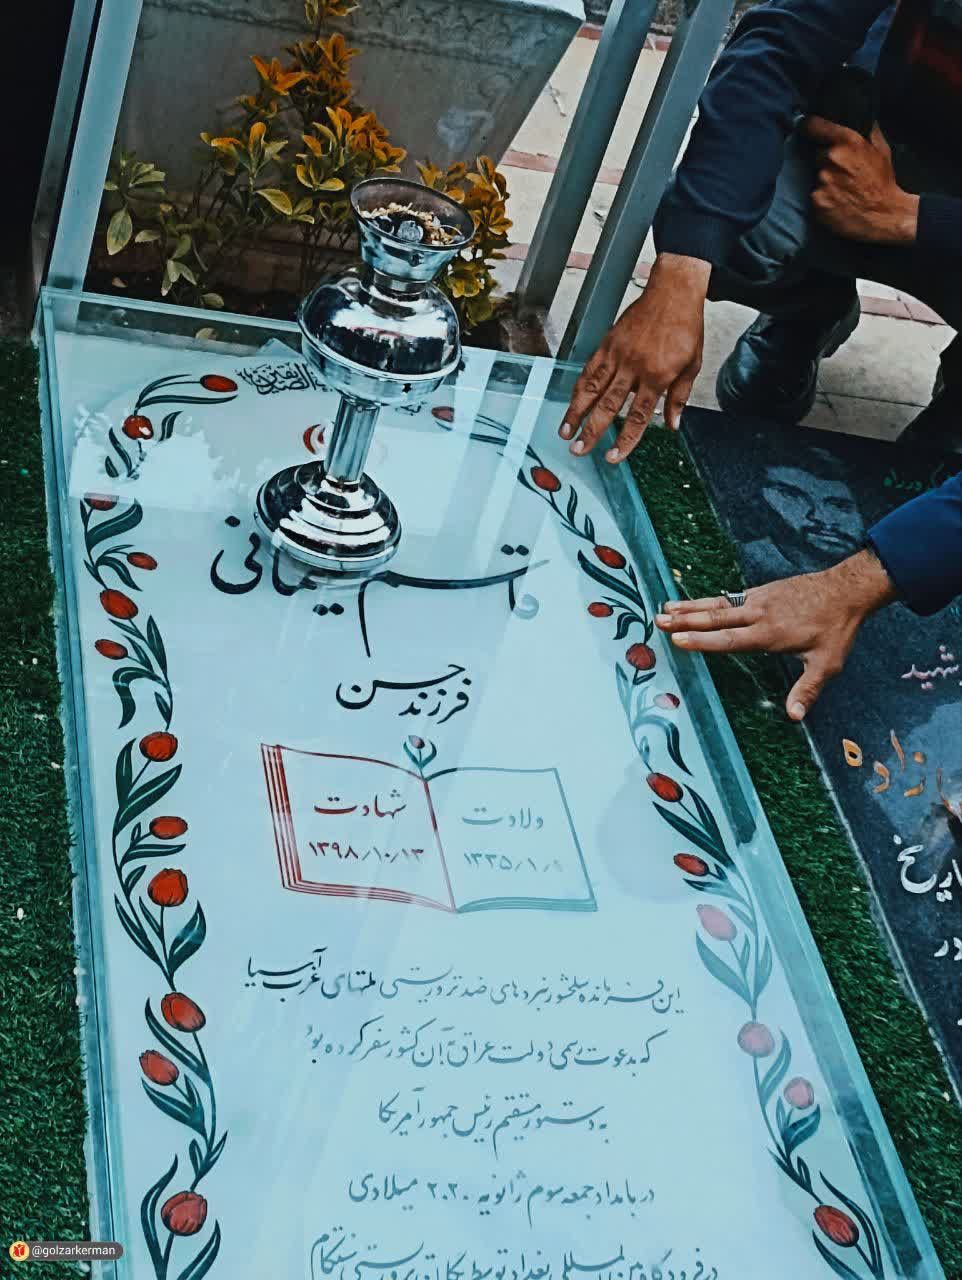 قاسم سلیمانی
فرزند حسن
ولادت
۱۳۳۵/۱/
شهادت
۱۳۹۸/۱۰/۱۳
این فرمانده سلحشور نبردهای ضد تروریستی ملتهای غرب آسیا
که بدعوت رسمی دولت عراق به آن کشور سفر کرده بود
به دستور مستقیم رئیس جمهور آمریکا
در بامداد جمعه سوم ژانویه ۲۰۲۰ میلادی
در فرودگاه بین المللی بغداد توسط
شهید
زاده
تاریخ
در
@golzarkerman